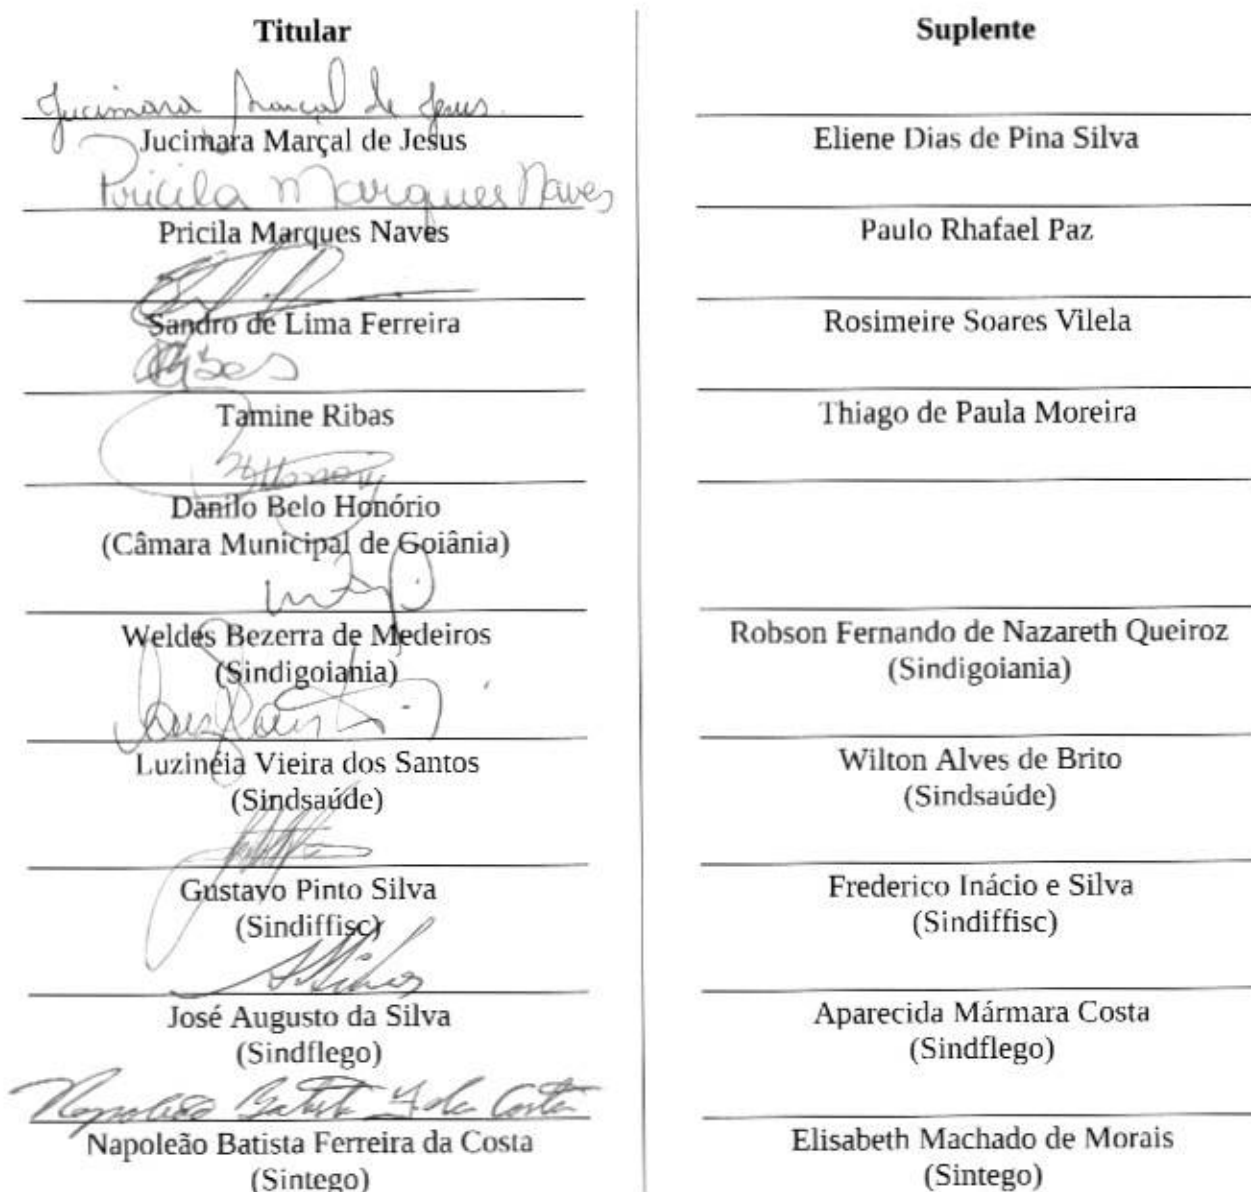 Titular
Jucimara Marçal de Jesus.
Jucimara Marçal de Jesus
Pricila Marques Naves
Pricila Marques Naves
Sandro de Lima Ferreira
Ribas
Tamine Ribas
Danilo Belo Honório
(Câmara Municipal de Goiânia)
Weldes Bezerra de Medeiros
(Sindigoiania)
Luzinéia Vieira dos Santos
(Sindsaúde)
Gustavo Pinto Silva
(Sindiffisc)
José Augusto da Silva
(Sindflego)
Napoleão Batista F da Costa
Napoleão Batista Ferreira da Costa
(Sintego)
Suplente
Eliene Dias de Pina Silva
Paulo Rhafael Paz
Rosimeire Soares Vilela
Thiago de Paula Moreira
Robson Fernando de Nazareth Queiroz
(Sindigoiania)
Wilton Alves de Brito
(Sindsaúde)
Frederico Inácio e Silva
(Sindiffisc)
Aparecida Mármara Costa
(Sindflego)
Elisabeth Machado de Morais
(Sintego)